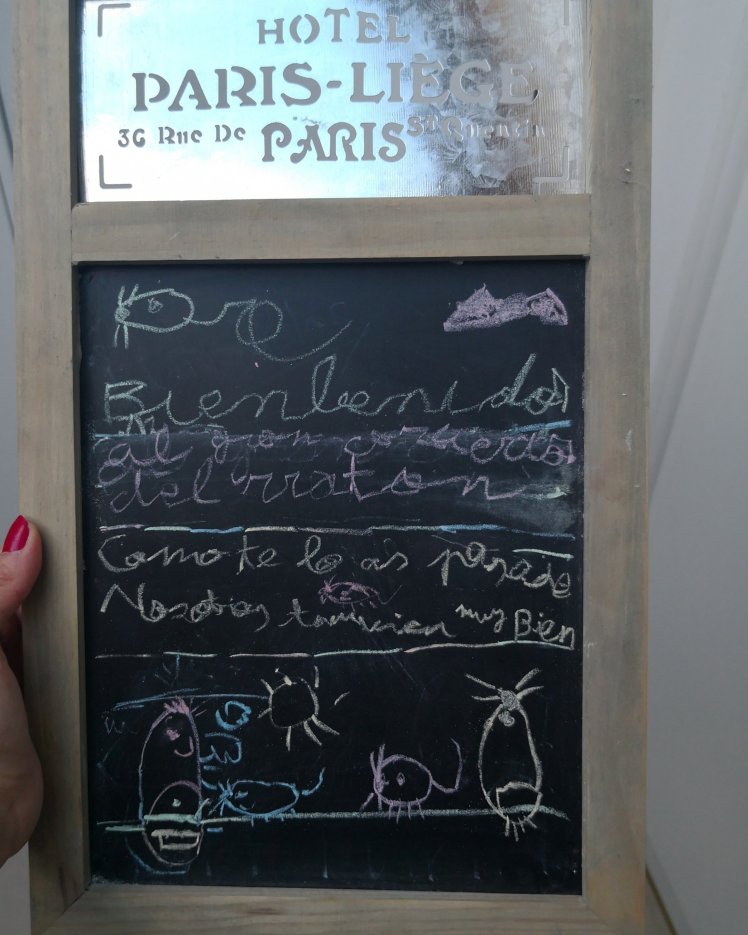 HOTEL
PARIS-LIÈGE
36 Rue De PARIS St Quentin
Bienbenidos
al gran
del rraton
Como te lo as pasado
Nosotros tamvien muy Bien